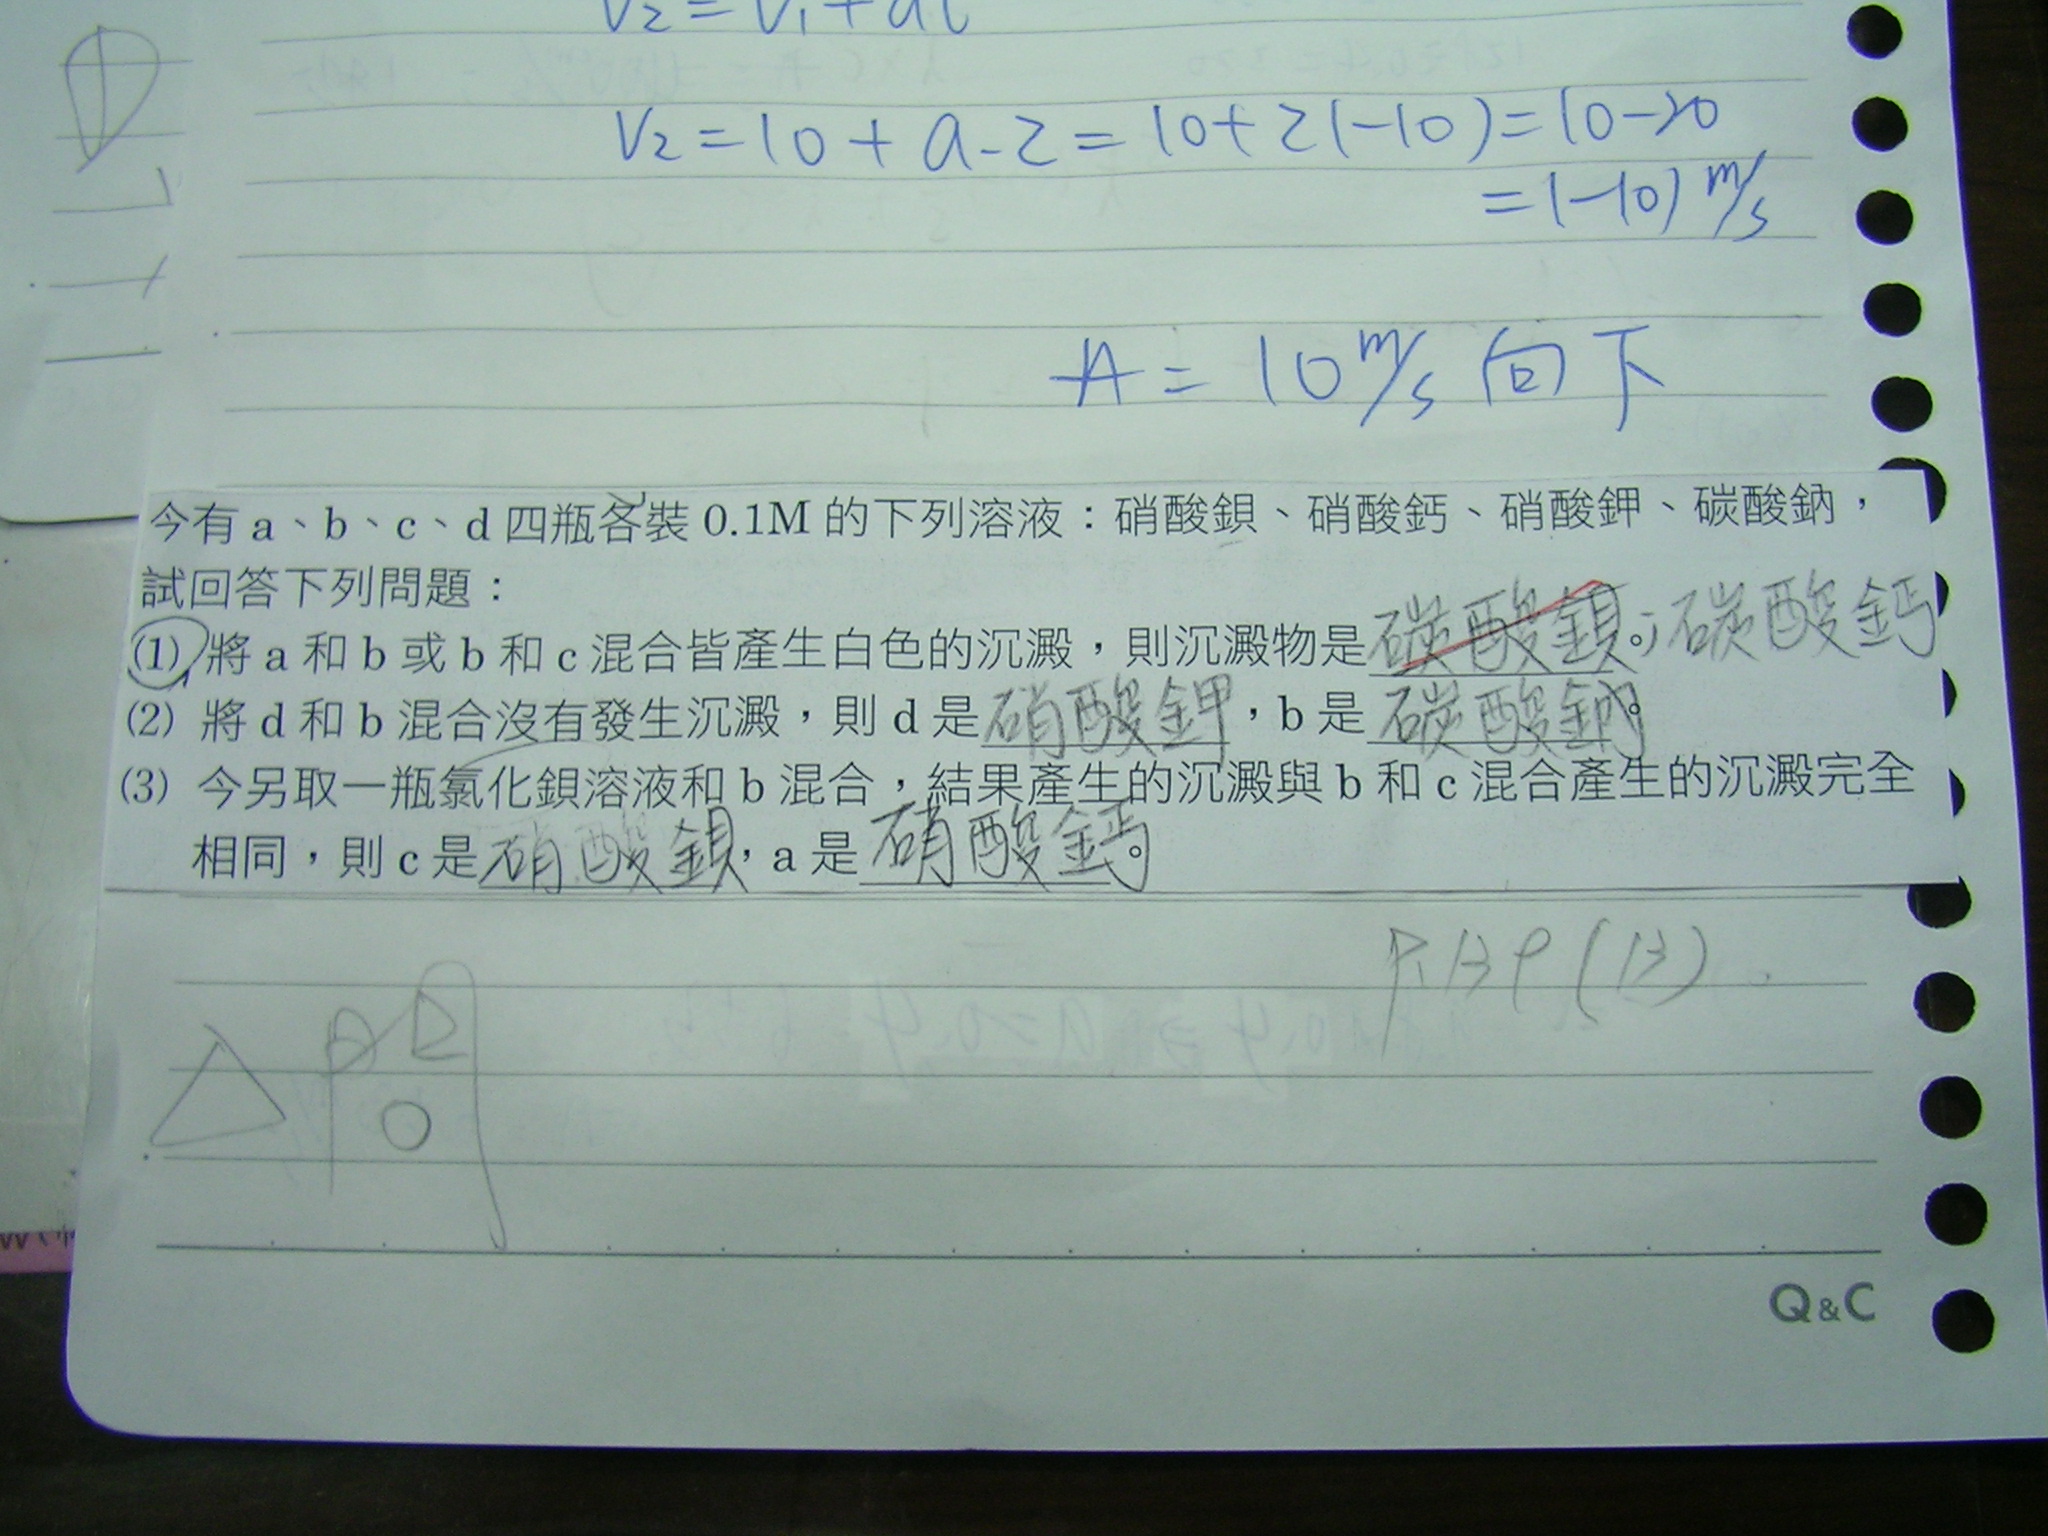 V₂ = V₁ + at
V₂ = 10 + a - 2 = 10 + 2(-10) = 10 - 20
= (-10) m/s
A = 10 m/s 向下
今有 a、b、c、d 四瓶各裝 0.1M 的下列溶液：硝酸鋇、硝酸鈣、硝酸鉀、碳酸鈉，
試回答下列問題：
(1) 將 a 和 b 或 b 和 c 混合皆產生白色的沉澱，則沉澱物是碳酸鋇。；碳酸鈣
(2) 將 d 和 b 混合沒有發生沉澱，則 d 是硝酸鉀，b 是碳酸鈉。
(3) 今另取一瓶氯化鋇溶液和 b 混合，結果產生的沉澱與 b 和 c 混合產生的沉澱完全
相同，則 c 是硝酸鋇，a 是硝酸鈣。
Q&C